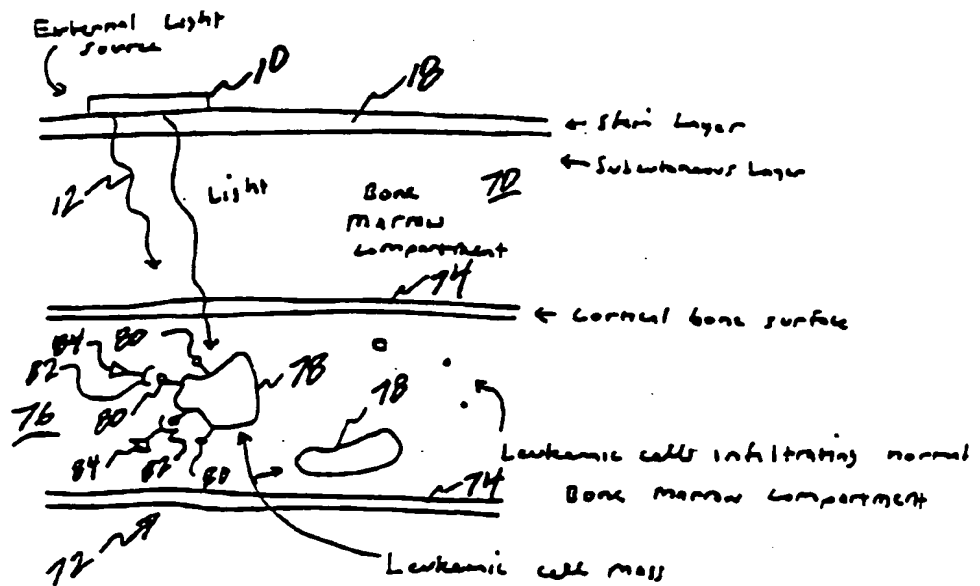 External Light
source
10
18
← Skin Layer
← Subcutaneous Layer
70
12
Light
Bone
Marrow
compartment
74
← Cortical bone surface
84
80
82
78
76
80
78
84
82
80
Leukemic cells infiltrating normal
Bone Marrow Compartment
74
72
Leukemic cell mass